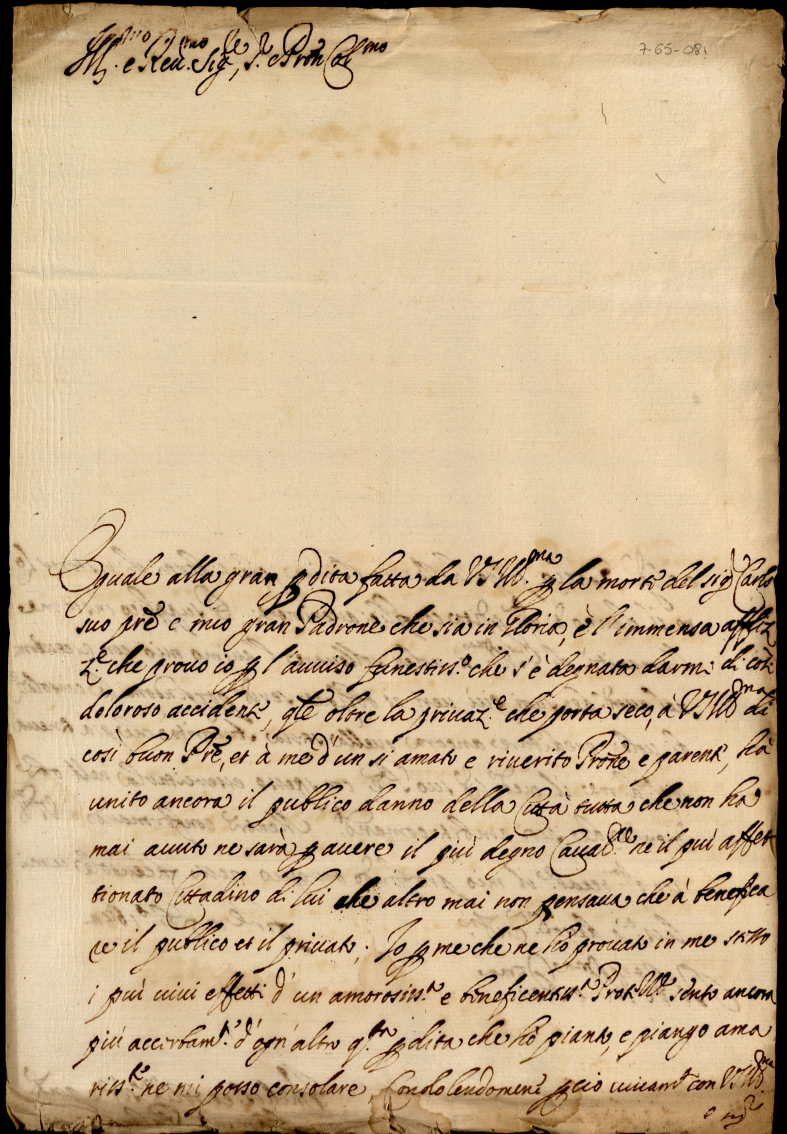 7-65-081
Ill.mo e Reu.mo Sig.re, S.r e Pron Col.mo
Eguale alla gran pdita fatta da VS Ill.ma p la morte del sig Carlo
suo prē e mio gran Padrone che sia in Gloria, è l'immensa affliz
z.e che prouo io p l'auuiso funestiss.o che s'è degnata darmi di così
doloroso accidente, qle oltre la priuaz.e che porta seco, à VS Ill.ma di
così buon Prē, et à me d'un si amato e riuerito Prone e parente, hà
unito ancora il publico danno della Città tutta che non ha
mai auuto ne sarà p auere il più degno Caual.re ne il più affet
tionato Cittadino di lui che altro mai non pensaua che à benefica
re il publico et il priuato; Io p me che ne hò prouato in me stesso
i più uiui effetti d'un amorosiss.a e beneficentiss.a Prot.ne sento ancora
più accerbam.te d'ogn'altro q.ta pdita che hò pianto, e piango ama
riss.te ne mi posso consolare, Condolendomene pciò uiuam.te con VS Ill.ma